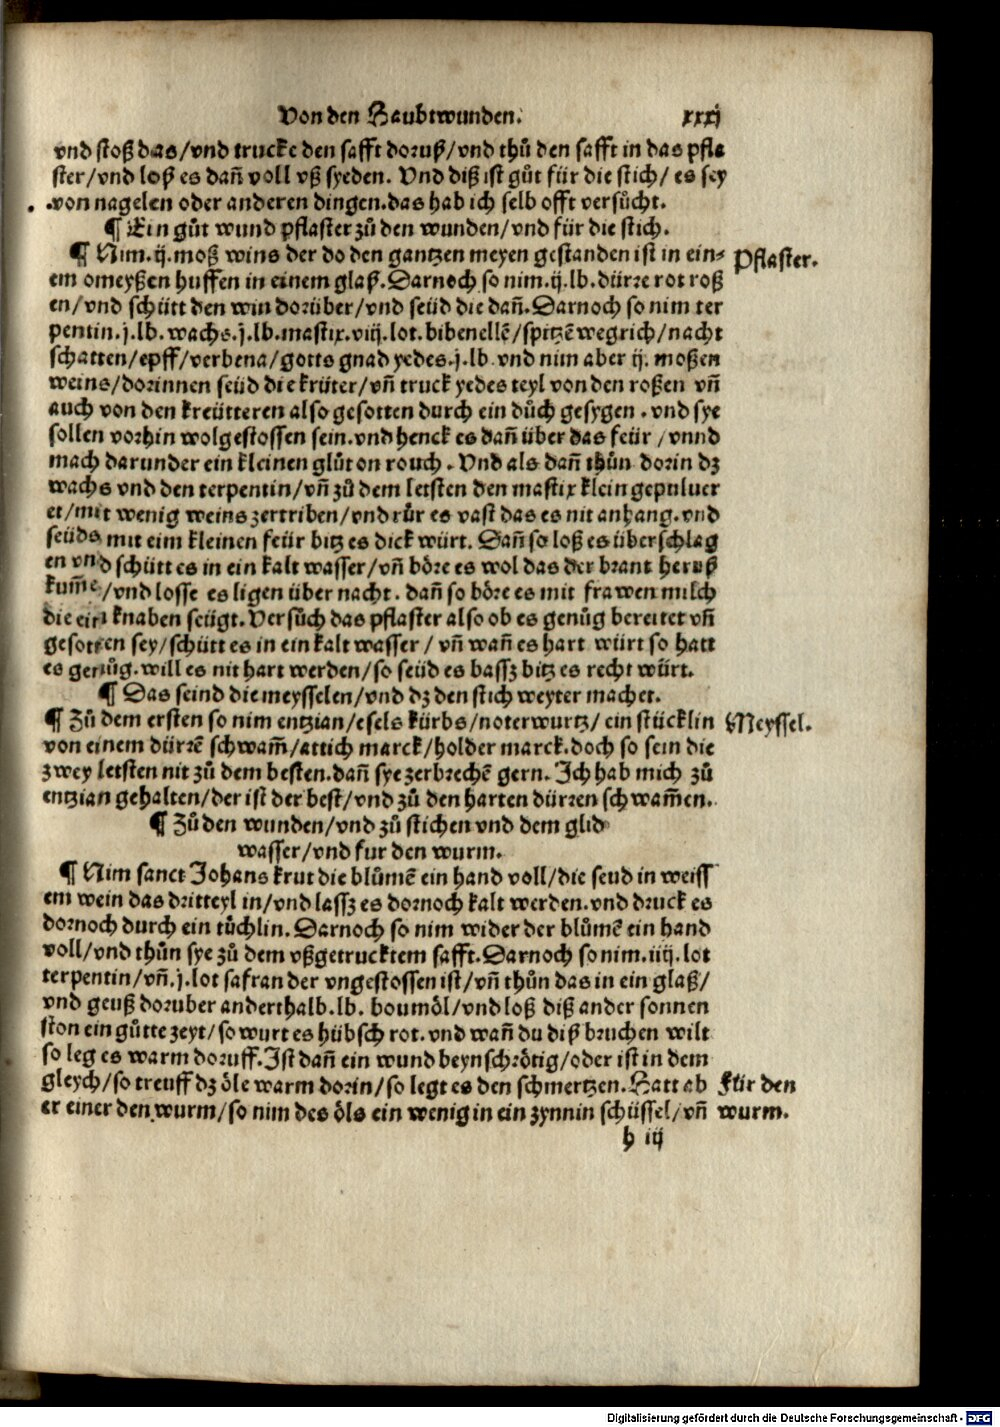 Von den Haubtwunden. xxxj
vnd stoß das/vnd trucke den safft doruß/vnd thů den safft in das pfla
ster/vnd loß es dañ voll vß syeden. Vnd diß ist gůt für die stich/ es sey
von nagelen oder anderen dingen.das hab ich selb offt versůcht.
¶ Ein gůt wund pflaster zů den wunden/vnd für die stich.
¶ Nim.ij.moß wins der do den gantzen meyen gestanden ist in ein⸗
Pflaster.
em omeyßen huffen in einem glaß.Darnoch so nim.ij.lb.dürre rot roß
en/vnd schütt den win dorüber/vnd seüd die dañ.Darnoch so nim ter
pentin.j.lb.wachs.j.lb.mastix.viij.lot.bibenellē/spitzē wegrich/nacht
schatten/epff/verbena/gotts gnad yedes.j.lb.vnd nim aber ij. moßen
weins/dorinnen seüd die krüter/vñ truck yedes teyl von den roßen vñ
auch von den kreütteren also gesotten durch ein důch gesygen.vnd sye
sollen vorhin wolgestossen sein.vnd henck es dañ über das feür/vnnd
mach darunder ein kleinen glůt on rouch. Vnd als dañ thůn dorin dz
wachs vnd den terpentin/vñ zů dem letsten den mastix klein gepuluer
et/mit wenig weins zertriben/vnd růr es vast das es nit anhang.vnd
seüds mit eim kleinen feür bitz es dick würt. Dañ so loß es überschlag
en vnd schütt es in ein kalt wasser/vñ böre es wol das der brant heruß
kum̄e/vnd losse es ligen über nacht. dañ so böre es mit frawen milch
die ein knaben seügt.Versůch das pflaster also ob es genůg bereitet vñ
gesotten sey/schütt es in ein kalt wasser/ vñ wañ es hart würt so hatt
es genůg.will es nit hart werden/so seüd es bassz bitz es recht würt.
¶ Das seind die meysselen/vnd dz den stich weyter machet.
¶ Zů dem ersten so nim entzian/esels kürbs/noterwurtz/ ein stücklin
Meyssel.
von einem dürrē schwam̄/attich marck/holder marck.doch so sein die
zwey letsten nit zů dem besten.dañ sye zerbrechē gern. Ich hab mich zů
entzian gehalten/der ist der best/vnd zů den harten dürren schwam̄en.
¶ Zů den wunden/vnd zů stichen vnd dem glid
wasser/vnd fur den wurm.
¶ Nim sanct Johans krut die blůmē ein hand voll/die seud in weiss
em wein das dritteyl in/vnd lassz es dornoch kalt werden.vnd druck es
dornoch durch ein tůchlin.Darnoch so nim wider der blůmē ein hand
voll/vnd thůn sye zů dem vßgetrucktem safft.Darnoch so nim.iiij.lot
terpentin/vñ.j.lot safran der vngestossen ist/vñ thůn das in ein glaß/
vnd geuß doruber anderthalb.lb. boumöl/vnd loß diß ander sonnen
ston ein gůtte zeyt/so wurt es hübsch rot.vnd wañ du diß bruchen wilt
so leg es warm doruff.Ist dañ ein wund beynschrötig/oder ist in dem
gleych/so treuff dz öle warm dorin/so legt es den schmertzen.Hatt ab
Für den
er einer den wurm/so nim des öls ein wenig in ein zynnin schüssel/vñ
wurm.
h iij
Digitalisierung gefördert durch die Deutsche Forschungsgemeinschaft - DFG